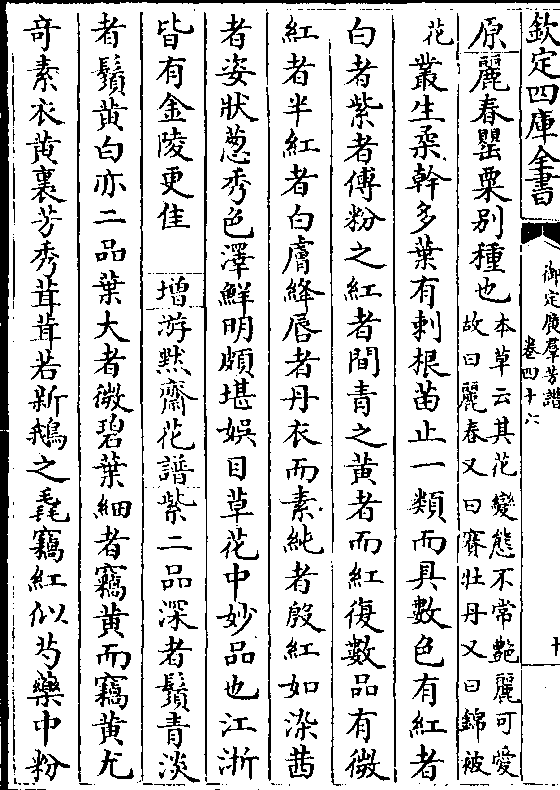 欽定四庫全書
御定廣羣芳譜
卷四十六
原麗春罌粟別種也
本草云其花變態不常艶麗可愛
故曰麗春又曰賽牡丹又曰錦被
花叢生柔幹多葉有刺根苗止一類而具數色有紅者
白者紫者傅粉之紅者間青之黄者而紅復數品有微
紅者半紅者白膚絳唇者丹衣而素純者殷紅如染茜
者姿狀葱秀色澤鮮明頗堪娛目草花中妙品也江浙
皆有金陵更佳　増游黙齋花譜紫二品深者鬚青淡
者鬚黄白亦二品葉大者微碧葉細者竊黄而竊黄尤
竒素衣黄裏芳秀茸茸若新鵝之毳竊紅似芍藥中粉